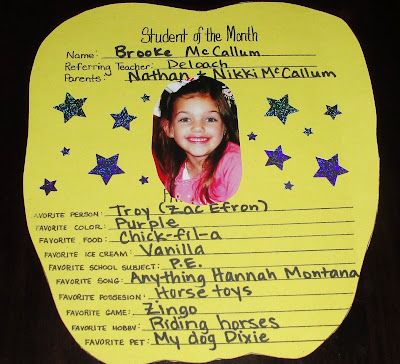 Student of the Month
Name: Brooke McCallum
Referring Teacher: Deloach
Parents: Nathan + Nikki McCallum
FAVORITE PERSON: Troy (Zac Efron)
FAVORITE COLOR: Purple
FAVORITE FOOD: Chick-fil-a
FAVORITE ICE CREAM: Vanilla
FAVORITE SCHOOL SUBJECT: P.E.
FAVORITE SONG: Anything Hannah Montana
FAVORITE POSSESION: Horse toys
FAVORITE GAME: Zingo
FAVORITE HOBBY: Riding horses
FAVORITE PET: My dog Dixie